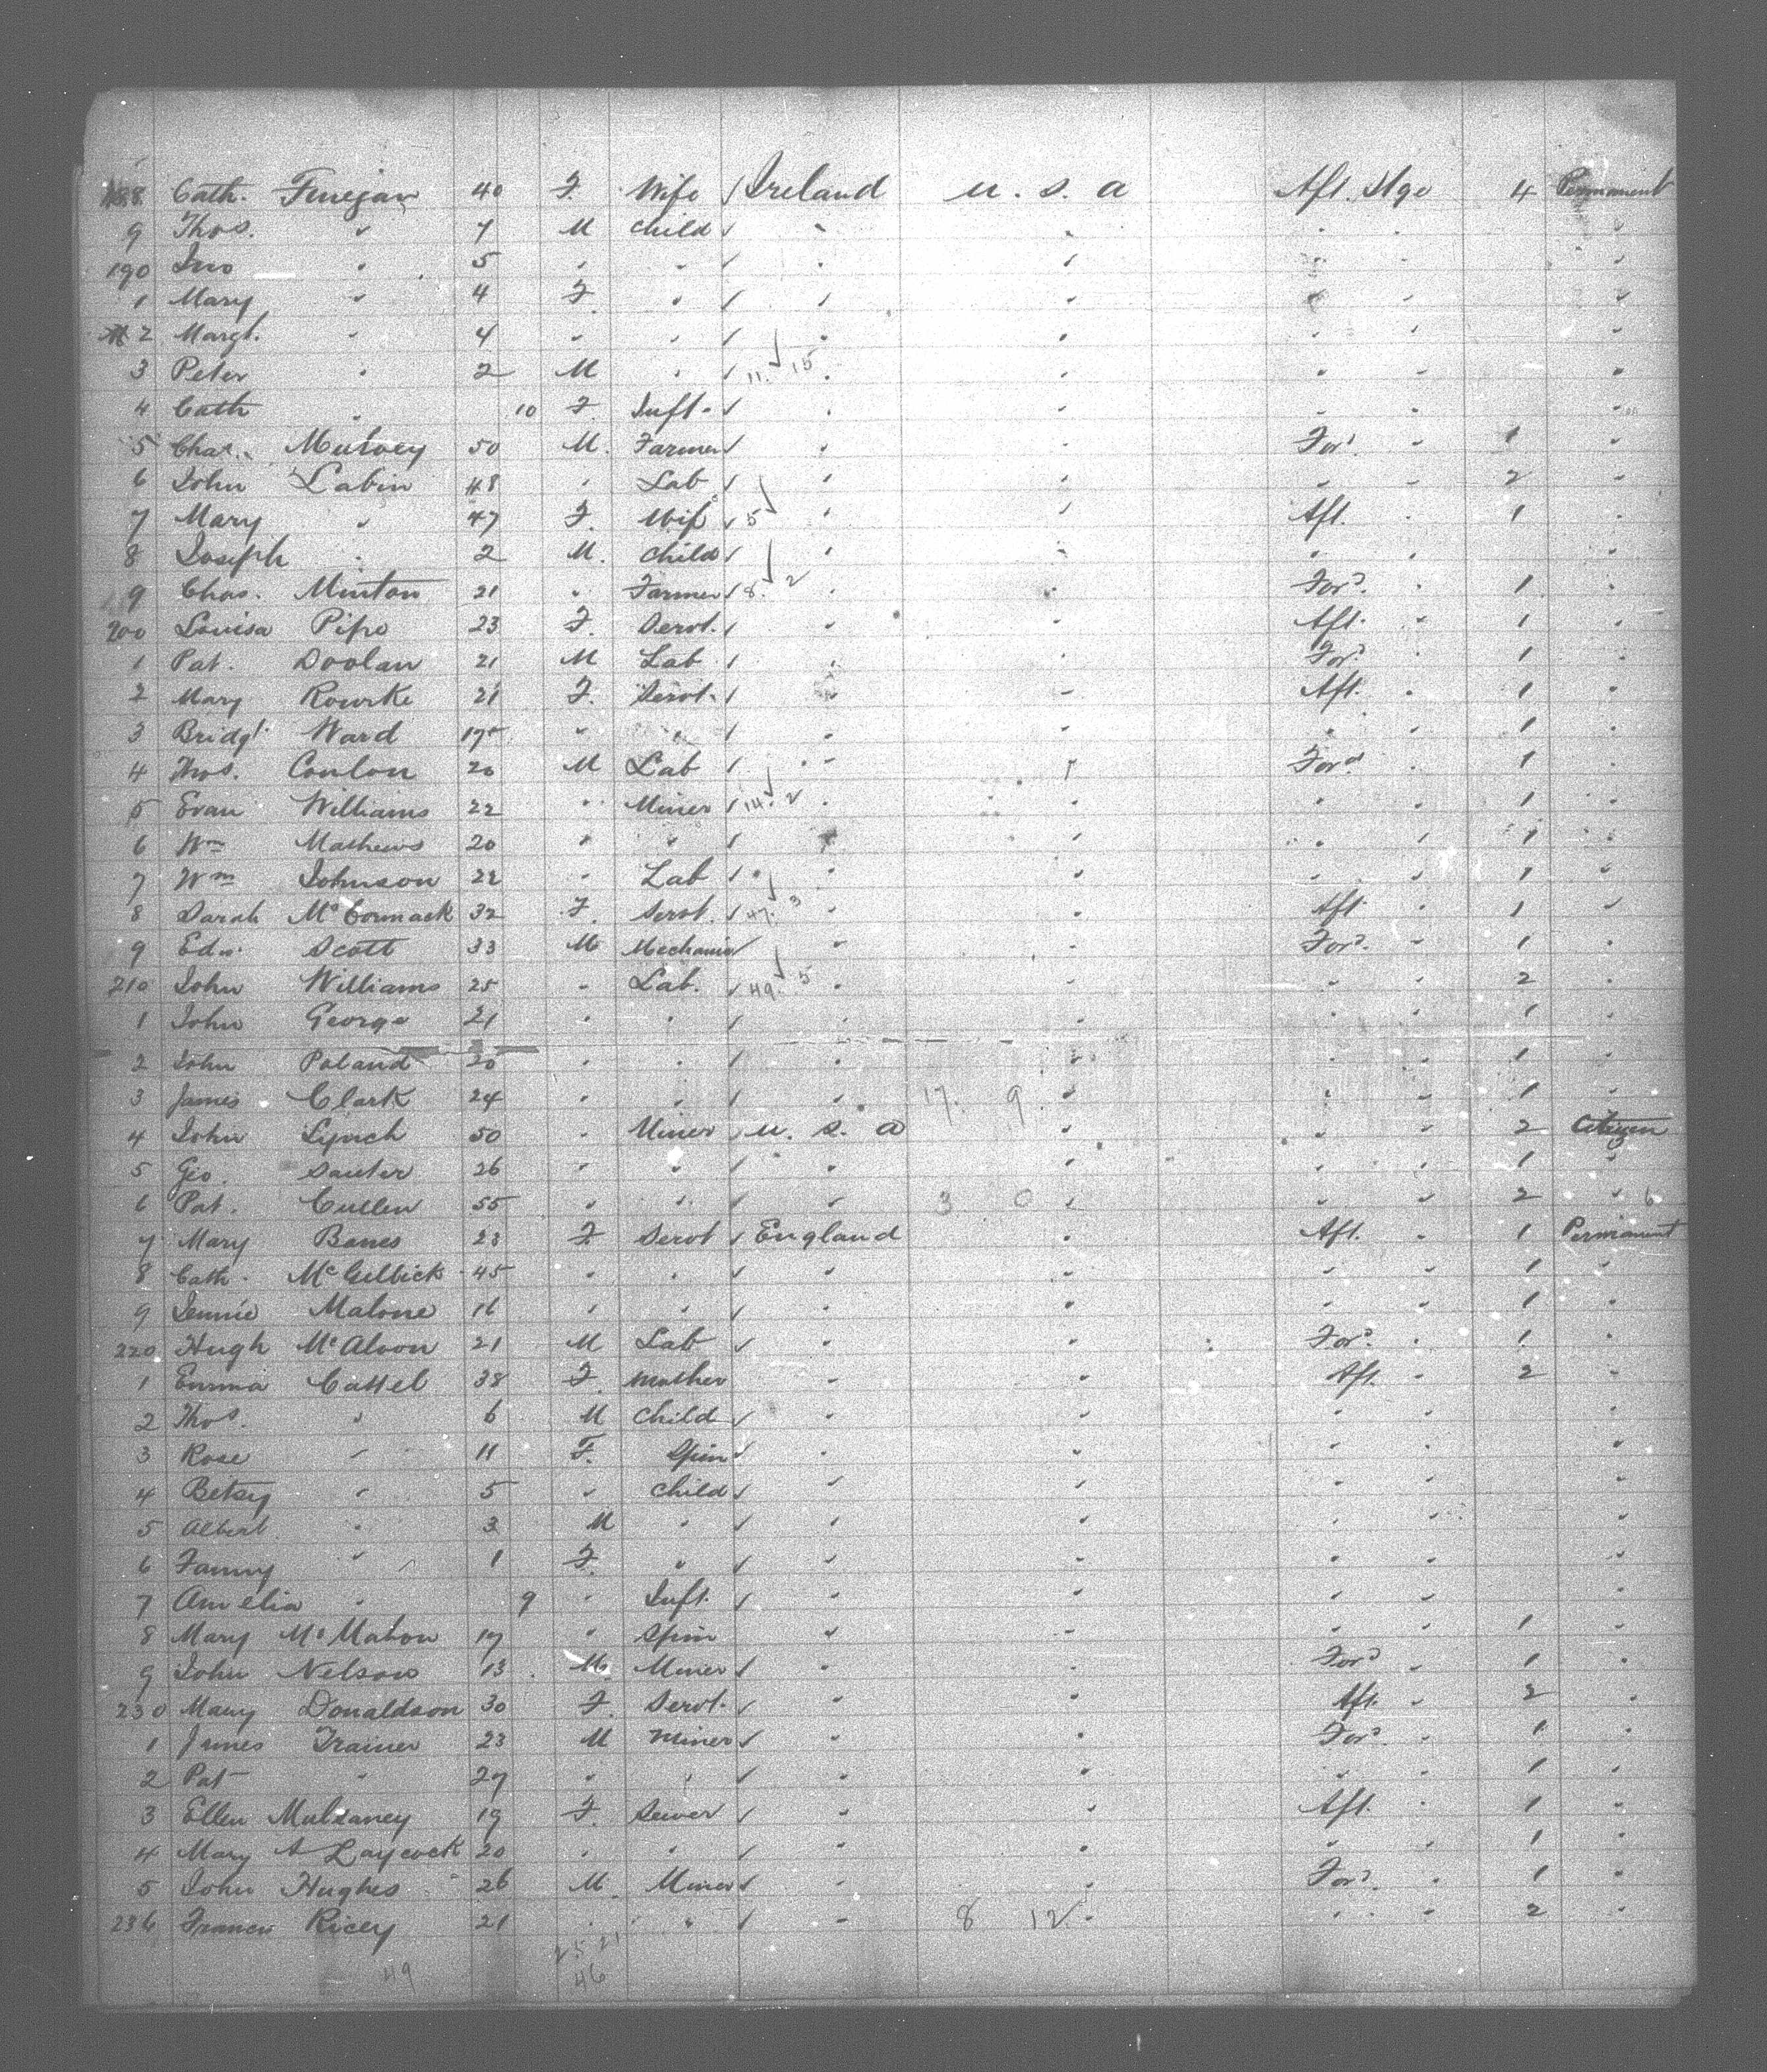 188 Cath. Finegan 40 F. Wife Ireland U. S. A Aft. Stge 4 Permanent
9 Thos. " 7 M Child " " " " "
190 Jno " 5 " " " " " " "
1 Mary " 4 F. " " " " " "
2 Margt. " 4 " " " " " " "
3 Peter " 2 M " 11. 15 " " " " "
4 Cath " 10 F. Inft. " " " " "
5 Chas. Mulvey 50 M. Farmer " " For'd " 1 "
6 John Labin 48 " Lab " " " " 2 "
7 Mary " 47 F. Wife 5 " " Aft. " 1 "
8 Joseph " 2 M. Child " " " " "
9 Chas. Minton 21 " Farmer 8. 2 " " For'd " 1 "
200 Louisa Pipe 23 F. Servt. " " Aft. " 1 "
1 Pat. Doolan 21 M Lab " " For'd " 1 "
2 Mary Rourke 21 F. Servt. " " Aft. " 1 "
3 Bridgt. Ward 17 " " " " " " 1 "
4 Thos. Conlon 20 M Lab " " For'd " 1 "
5 Evan Williams 22 " Miner 14. 2 " " " " 1 "
6 Wm Mathews 20 " " " " " " 1 "
7 Wm Johnson 22 " Lab " " " " 1 "
8 Sarah McCormack 32 F. Servt. 47. 3 " " Aft. " 1 "
9 Edw. Scott 33 M Mechanic " " For'd " 1 "
210 John Williams 25 " Lab. 49. 5 " " " " 2 "
1 John George 21 " " " " " " 1 "
2 John Poland 20 " " " " " " 1 "
3 James Clark 24 " " " 17. 9. " " " 1 "
4 John Lynch 50 " Miner U. S. A " " " 2 Citizen
5 Geo. Sauter 26 " " " " " " 1 "
6 Pat. Cullen 55 " " " 3 0 " " " 2 " 6
7 Mary Banes 23 F. Servt England " Aft. " 1 Permanent
8 Cath. 45 " " " " " " 1 "
9 Jennie Malone 16 " " " " " " 1 "
220 Hugh McAloon 21 M Lab " " For'd " 1 "
1 Emma Cassel 38 F. Mother " " Aft. " 2 "
2 Thos. " 6 M Child " " " " "
3 Rose " 11 F. Spin " " " " "
4 Betsy " 5 " Child " " " " "
5 Albert " 3 M " " " " " "
6 Fanny " 1 F. " " " " " "
7 Amelia " 9 " Inft. " " " " "
8 Mary McMahon 17 " Spin " " " " 1 "
9 John Nelson 13 M. Miner " " For'd " 1 "
230 Mary Donaldson 30 F. Servt. " " Aft. " 2 "
1 James Trainer 23 M Miner " " For'd " 1 "
2 Pat " 27 " " " " " " 1 "
3 Ellen Mulvaney 19 F. Sewer " " Aft. " 1 "
4 Mary A Laycock 20 " " " " " " 1 "
5 John Hughes 26 M. Miner " " For'd " 1 "
236 Francis Ricey 21 " " " 8 12 " " " 2 "
25 21
49 46